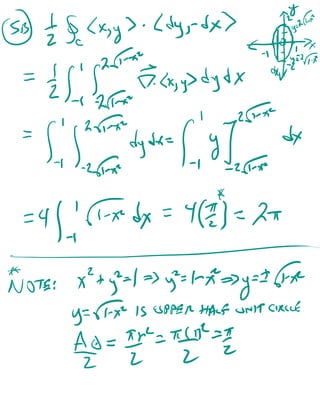 (5B) 1/2 ∮_C <x,y> · <dy,-dx>
= 1/2 ∫_{-1}^{1} ∫_{-2√(1-x²)}^{2√(1-x²)} ∇·<x,y> dy dx
= ∫_{-1}^{1} ∫_{-2√(1-x²)}^{2√(1-x²)} dy dx = ∫_{-1}^{1} y]_{-2√(1-x²)}^{2√(1-x²)} dx
= 4 ∫_{-1}^{1} √(1-x²) dx = 4(π/2)* = 2π
* NOTE: x²+y²=1 => y²=1-x² => y=±√(1-x²)
y=√(1-x²) IS UPPER HALF UNIT CIRCLE
A⊙/2 = πr²/2 = π(1)²/2 = π/2